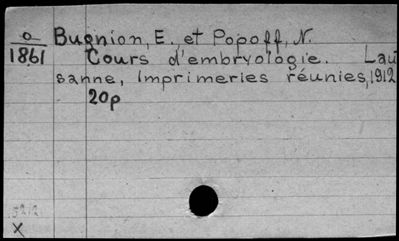 a
1861
Bugnion, E., et Popoff, N.
Cours d'embryologie. Lau
sanne, Imprimeries réunies, 1912
20p
X